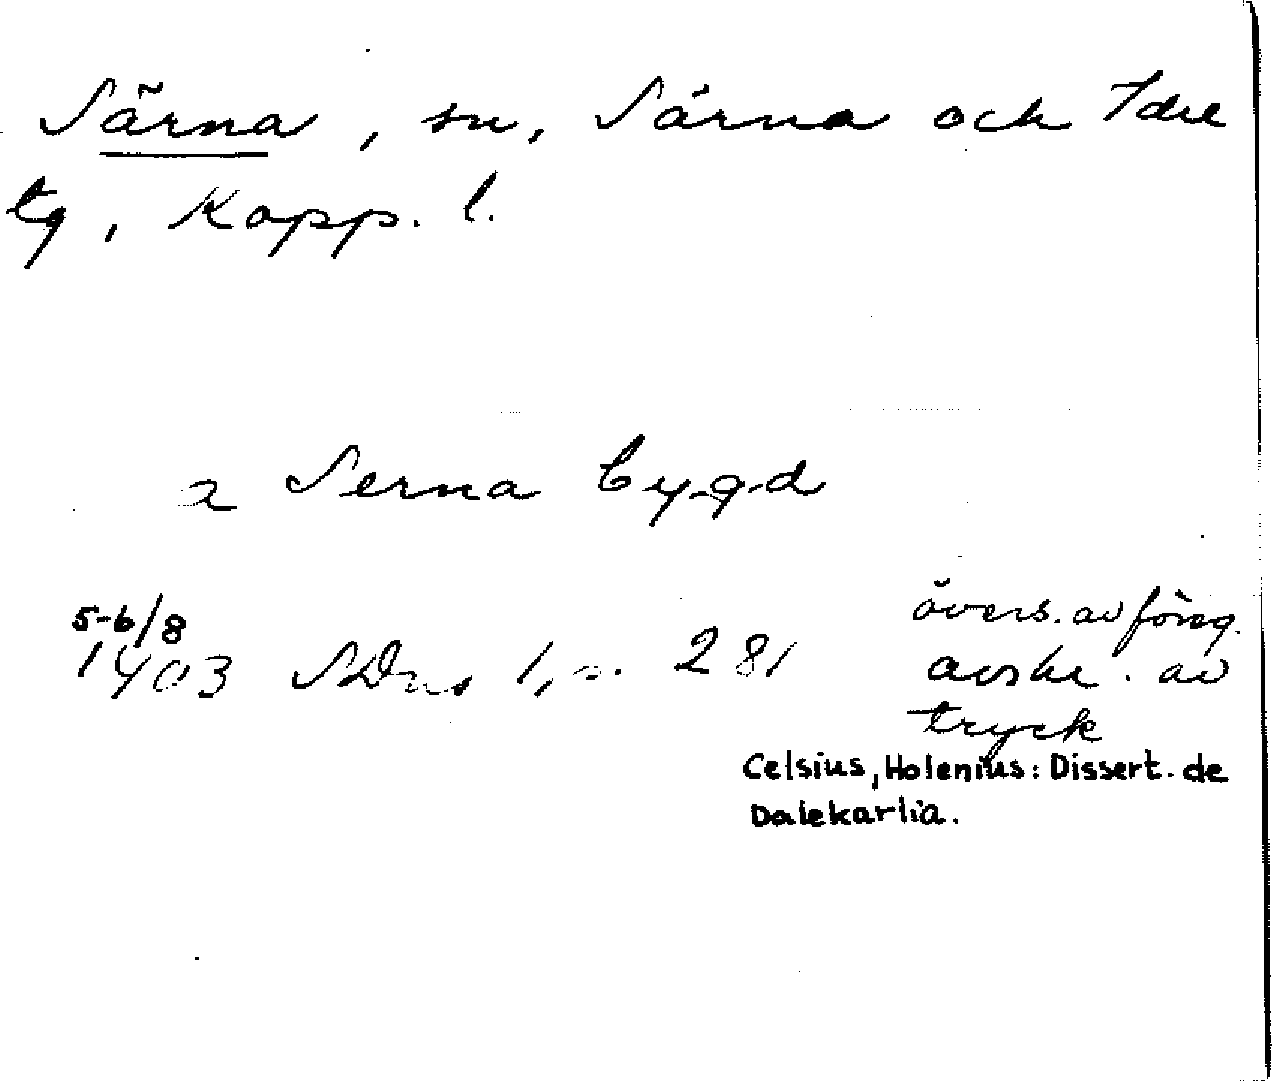 Särna, sn, Särna och Idre
tg, Kopp. l.
a Serna bygd
5-6/8
1403 SDns 1, s. 281
övers. av föreg.
avskr. av
tryck
Celsius, Holenius: Dissert. de
Dalekarlia.